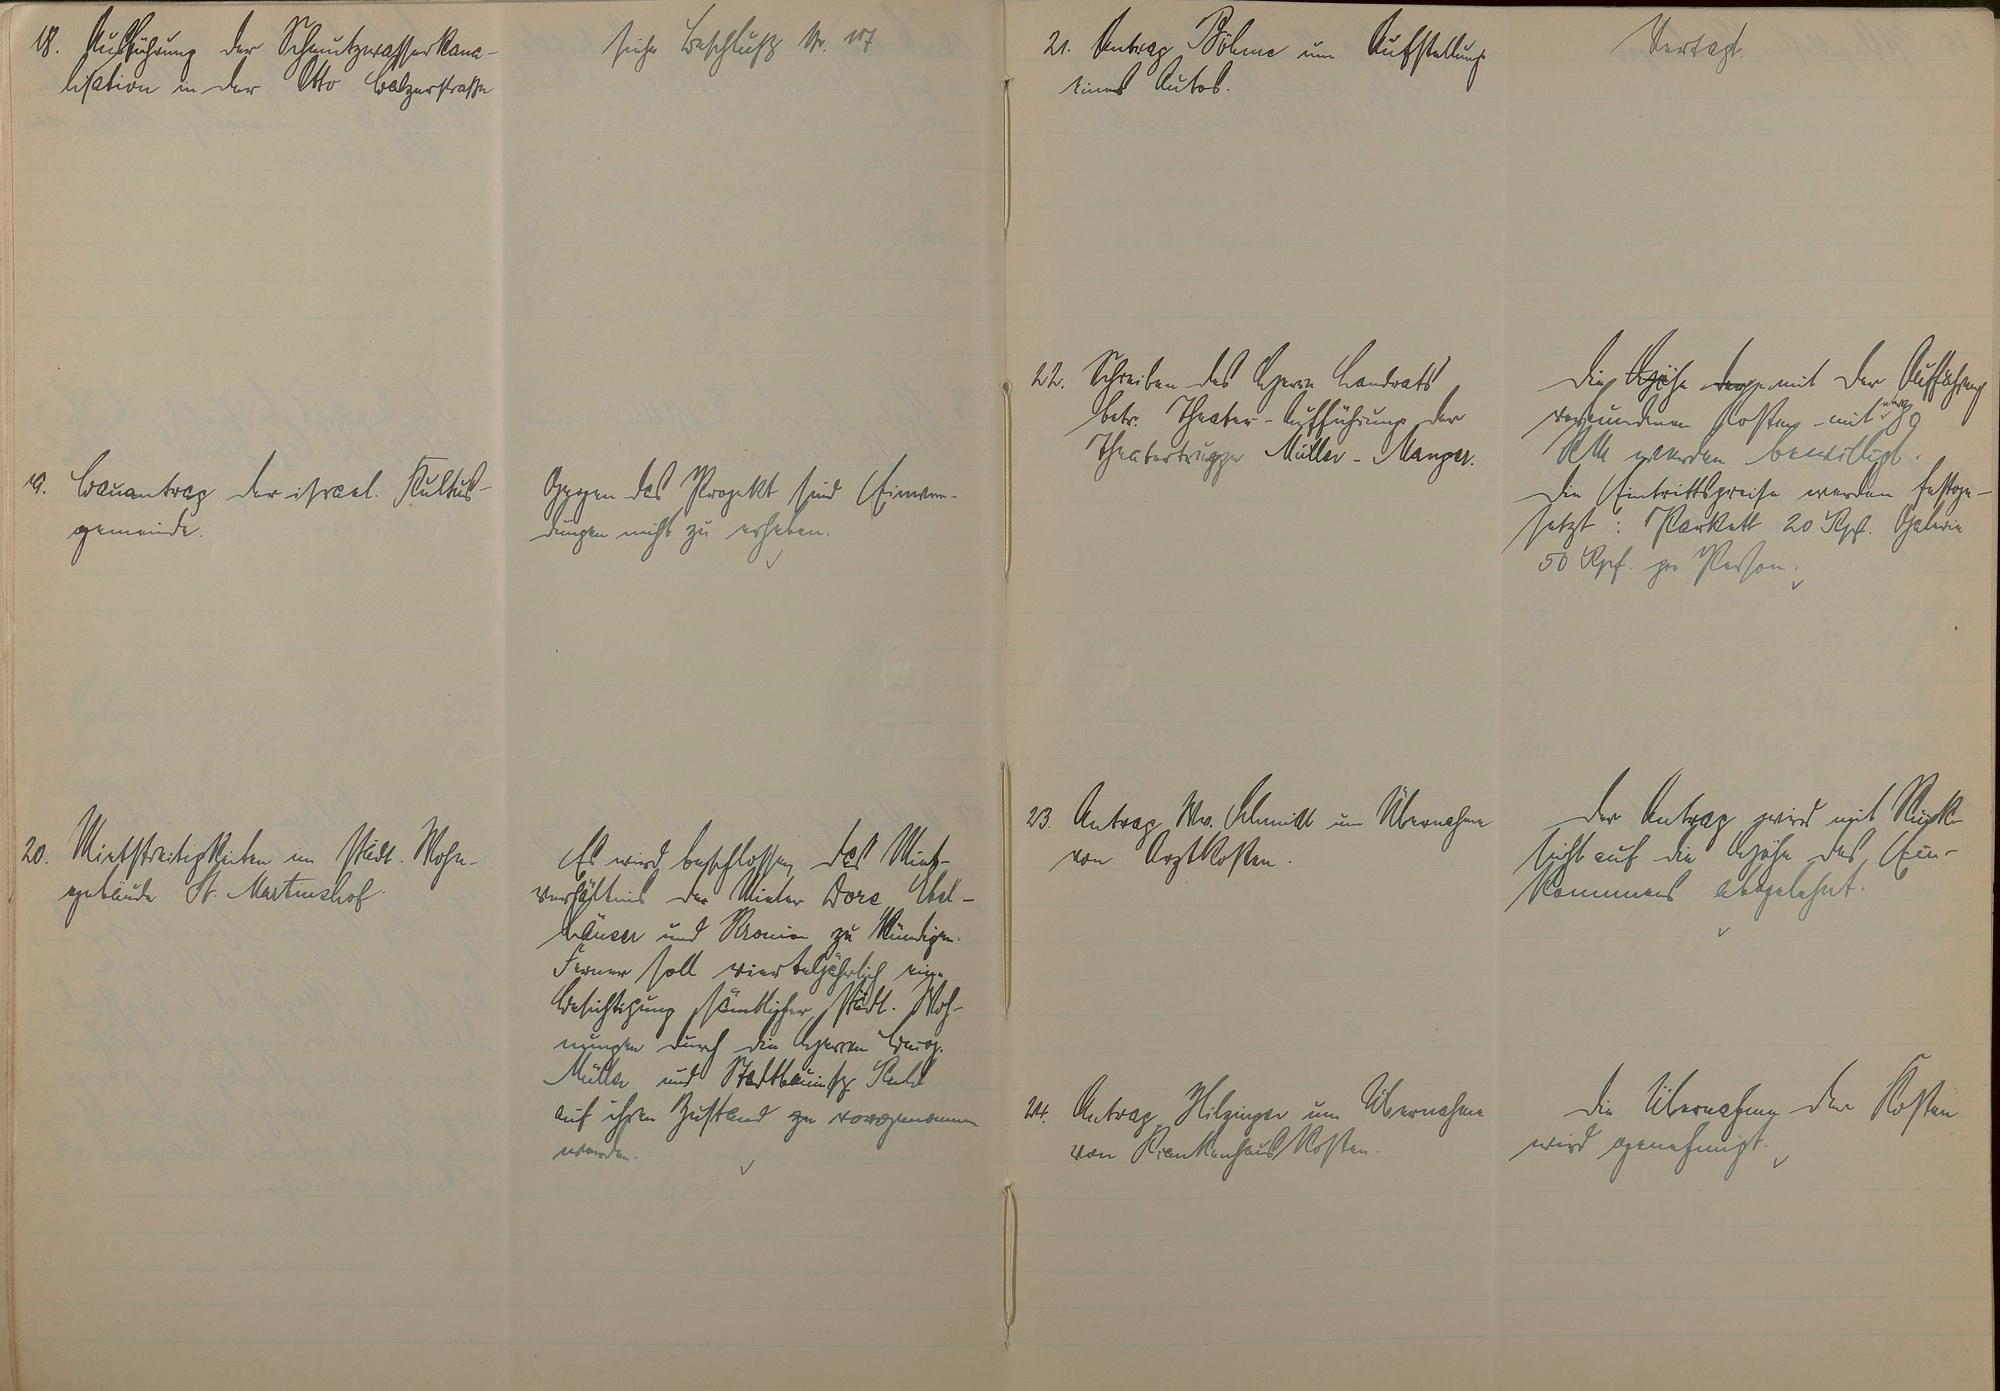 18. Ausführung der Schmutzwasserkana-
lisation in der Otto Balzerstraße
siehe Beschluß Nr. 17
19. Bauantrag der israel. Kultus-
gemeinde.
Gegen das Projekt sind Einwen-
dungen nicht zu erheben.
20. Mietstreitigkeiten im städt. Wohn-
gebäude St. Martinshof.
Es wird beschlossen, das Miet-
verhältnis der Mieter Dorc
und zu kündigen.
Ferner soll vierteljährlich eine
Besichtigung sämtlicher städt. Woh-
nungen durch die Herren
Müller und
auf ihren Zustand zu vorgenommen
werden.
21. Antrag Böhme um Aufstellung
eines Autos.
Vertagt.
22. Schreiben des Herrn Landrats
betr. Theater-Aufführung der
Theatertruppe Müller-Manger.
Die Höhe der mit der Aufführung
verbundenen Kosten mit
RM werden bewilligt.
Die Eintrittspreise werden festge-
setzt: Parkett 20 Rpf. Galerie
50 Rpf. pro Person.
23. Antrag Ww. Schmidt um Übernahme
von Arztkosten.
Der Antrag wird mit Rück-
sicht auf die Höhe des Ein-
kommens abgelehnt.
24. Antrag Hilzinger um Übernahme
von Krankenhauskosten.
Die Übernahme der Kosten
wird genehmigt.